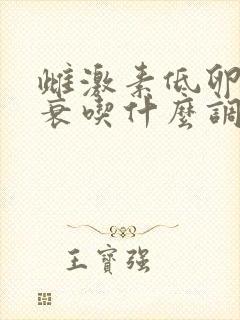 雌激素低卵
衰喫什麼調
王寶強